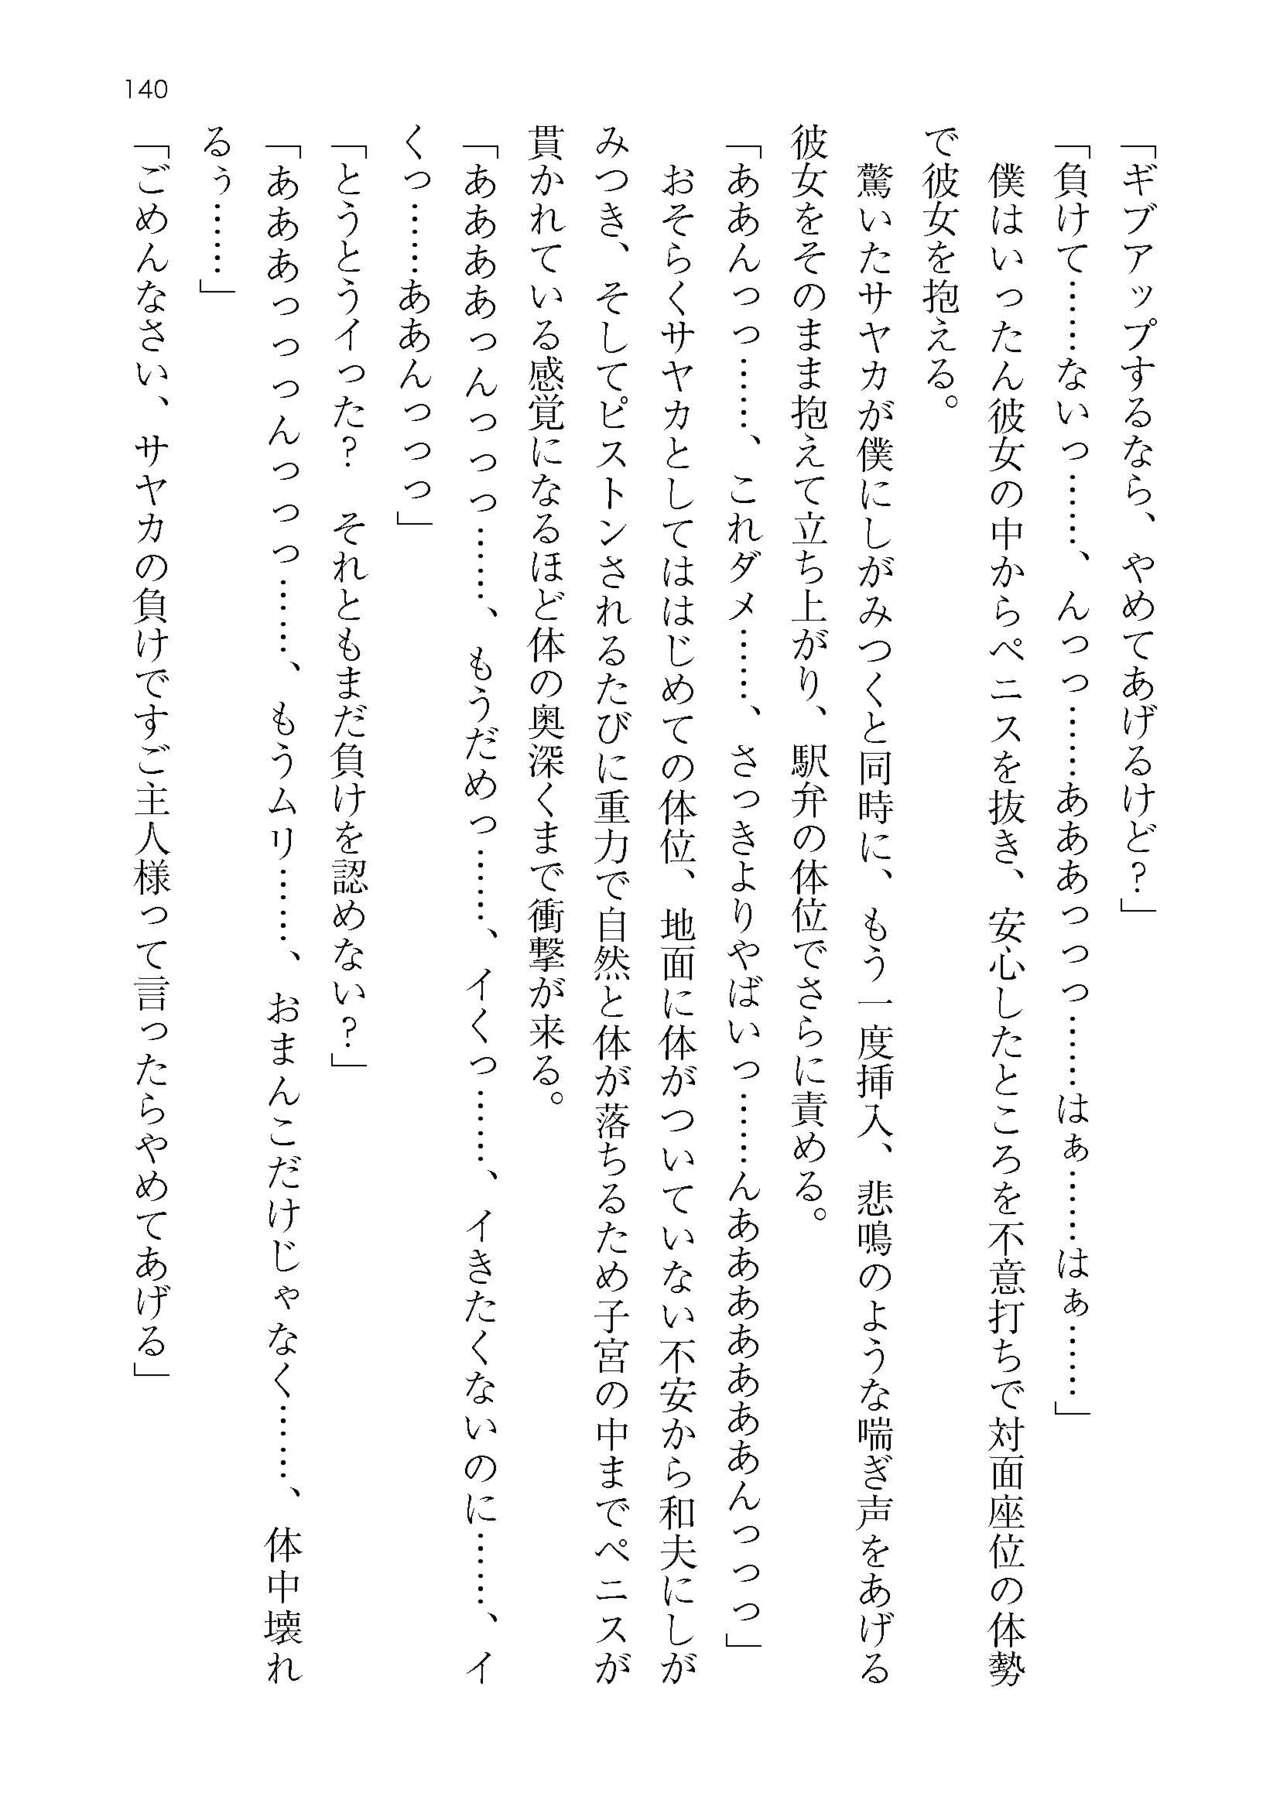 140
「ギブアップするなら、やめてあげるけど?」
「負けて……ないっ……、んっっ……あああっっっ……はぁ……はぁ……」
僕はいったん彼女の中からペニスを抜き、安心したところを不意打ちで対面座位の体勢
で彼女を抱える。
驚いたサヤカが僕にしがみつくと同時に、もう一度挿入、悲鳴のような喘ぎ声をあげる
彼女をそのまま抱えて立ち上がり、駅弁の体位でさらに責める。
「ああんっっ……、これダメ……、さっきよりやばいっ……んあああああああんっっっ」
おそらくサヤカとしてははじめての体位、地面に体がついていない不安から和夫にしが
みつき、そしてピストンされるたびに重力で自然と体が落ちるため子宮の中までペニスが
貫かれている感覚になるほど体の奥深くまで衝撃が来る。
「ああああっんっっっ……、もうだめっ……、イくっ……、イきたくないのに……、イ
くっ……ああんっっっ」
「とうとうイった? それともまだ負けを認めない?」
「あああっっっんっっっ……、もうムリ……、おまんこだけじゃなく……、体中壊れ
るぅ……」
「ごめんなさい、サヤカの負けですご主人様って言ったらやめてあげる」